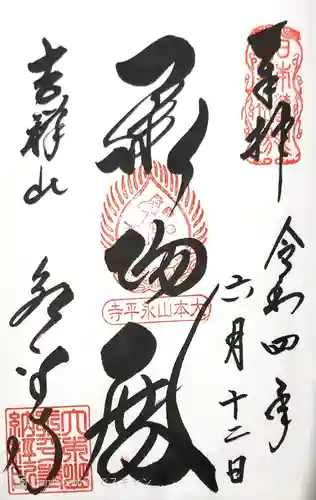 奉拝
令和四年
六月十二日
承陽殿
大本山永平寺
吉祥山
永平寺